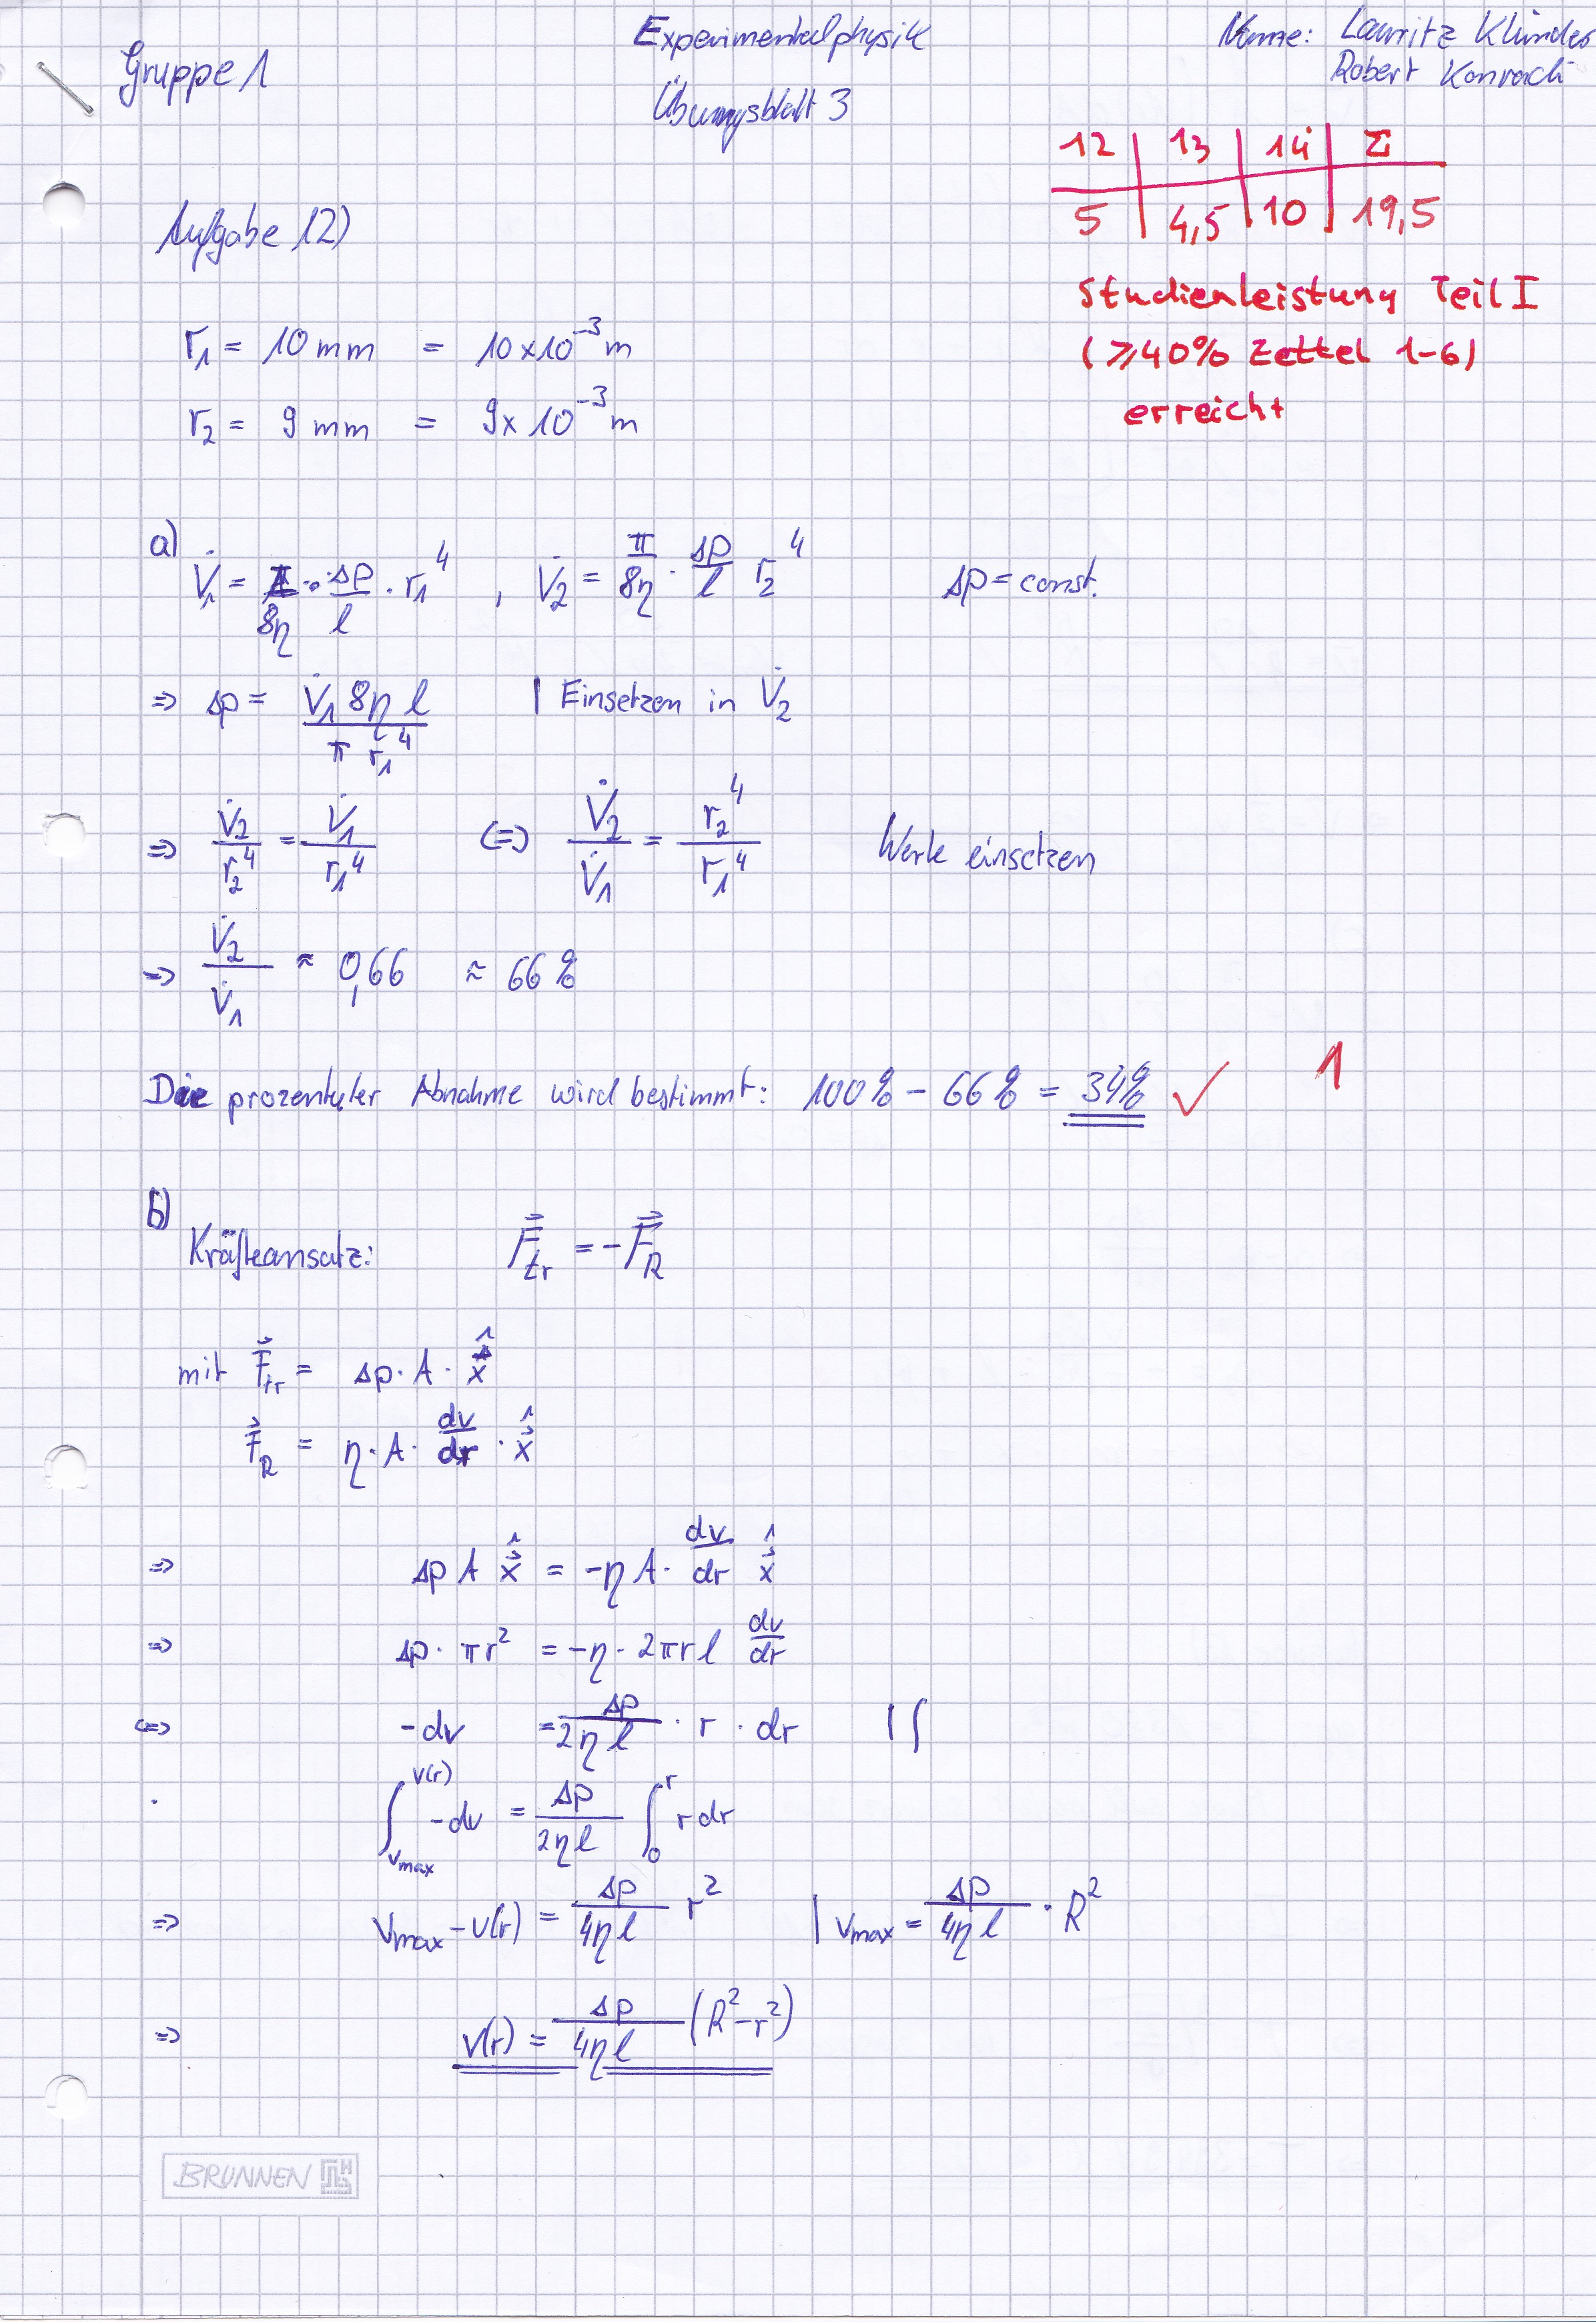 Gruppe 1
Experimentalphysik
Übungsblatt 3
Name: Lauritz Klünder
Robert Konradi
12 | 13 | 14 | Σ
5 | 4,5 | 10 | 19,5
Studienleistung Teil I
(≥40% Zettel 1-6)
erreicht
Aufgabe 12)
r₁ = 10 mm = 10×10⁻³ m
r₂ = 9 mm = 9×10⁻³ m
a)
V̇₁ = π/8η · Δp/l · r₁⁴ , V̇₂ = π/8η · Δp/l r₂⁴ Δp = const.
⇒ Δp = V̇₁ 8η l / π r₁⁴ | Einsetzen in V̇₂
⇒ V̇₂/r₂⁴ = V̇₁/r₁⁴ ⇔ V̇₂/V̇₁ = r₂⁴/r₁⁴ Werte einsetzen
⇒ V̇₂/V̇₁ ≈ 0,66 ≈ 66%
Die prozentuler Abnahme wird bestimmt: 100% - 66% = 34% ✓ 1
b)
Kräfteansatz: F⃗tr = -F⃗R
mit F⃗tr = Δp · A · x̂
F⃗R = η · A · dv/dr · x̂
⇒ Δp A x̂ = -η A · dv/dr x̂
⇒ Δp · πr² = -η · 2πr l dv/dr
⇔ -dv = Δp/2ηl · r · dr | ∫
∫_{vmax}^{v(r)} -dv = Δp/2ηl ∫_0^r r dr
⇒ vmax - v(r) = Δp/4ηl r² | vmax = Δp/4ηl · R²
⇒ v(r) = Δp/4ηl (R² - r²)
BRUNNEN